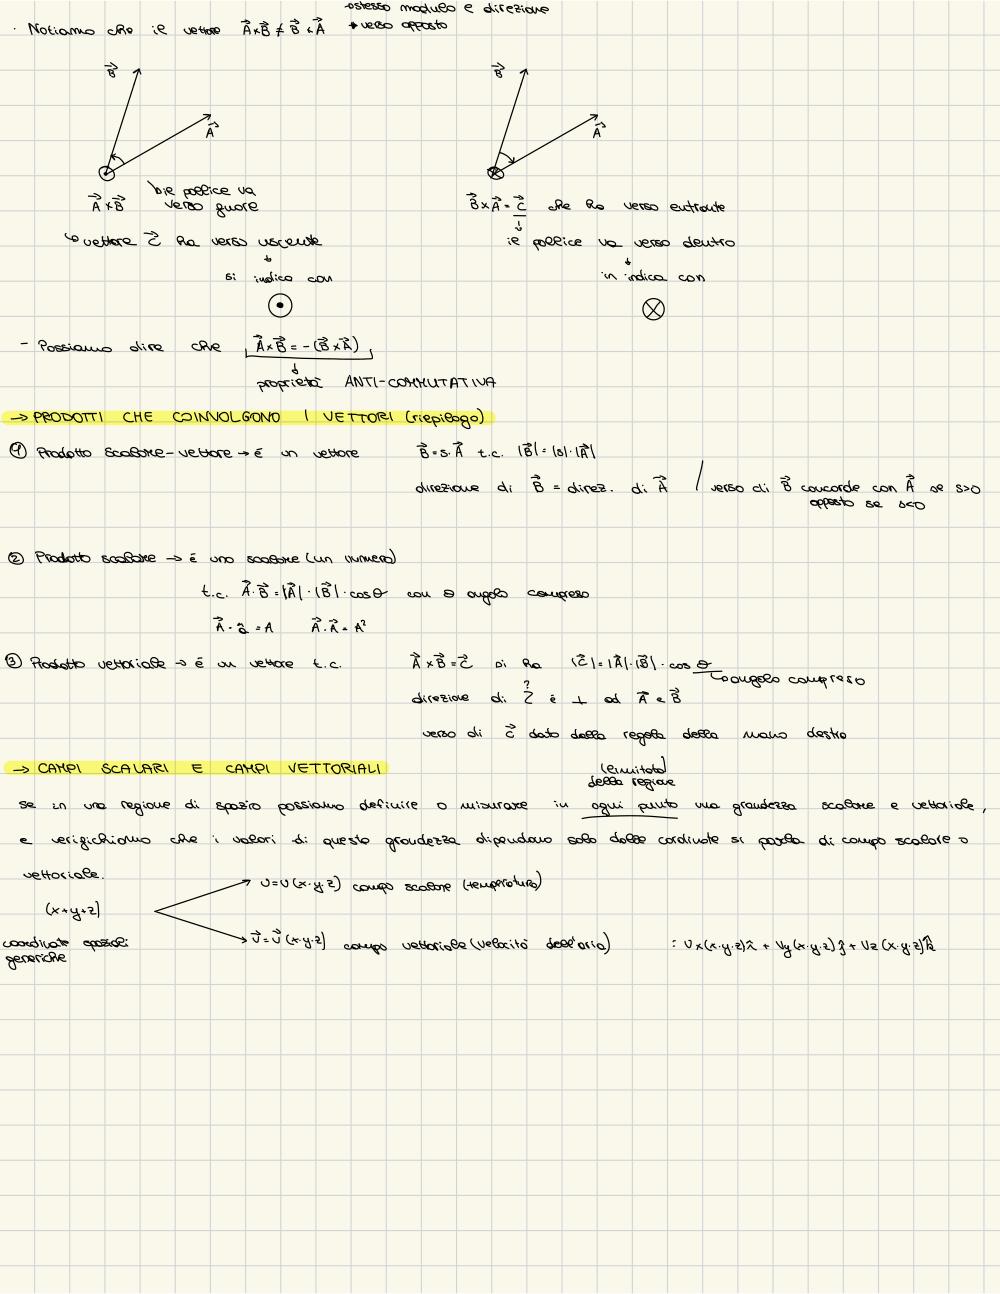 →stesso modulo e direzione
· Notiamo che il vettore A⃗×B⃗ ≠ B⃗×A⃗ → verso opposto
B⃗ A⃗ B⃗ A⃗
A⃗×B⃗ il pollice va verso fuori
B⃗×A⃗ = C⃗ che ha verso entrante
↳ vettore C⃗ ha verso uscente
↓ il pollice va verso dentro
↓ si indica con
↓ in indica con
⊙ ⊗
- Possiamo dire che A⃗×B⃗ = -(B⃗×A⃗)
↓ proprietà ANTI-COMMUTATIVA
→ PRODOTTI CHE COINVOLGONO I VETTORI (riepilogo)
① Prodotto scalare-vettore → é un vettore B⃗ = s·A⃗ t.c. |B⃗| = |s|·|A⃗|
direzione di B⃗ = direz. di A⃗ / verso di B⃗ concorde con A⃗ se s>0
opposto se s<0
② Prodotto scalare → é uno scalare (un numero)
t.c. A⃗·B⃗ = |A⃗|·|B⃗|·cosθ con θ angolo compreso
A⃗·â = A A⃗·A⃗ = A²
③ Prodotto vettoriale → é un vettore t.c. A⃗×B⃗ = C⃗ si ha |C⃗| = |A⃗|·|B⃗|·cos θ
↳ angolo compreso
direzione di C⃗ è ⊥ ad A⃗ e B⃗
verso di C⃗ dato dalla regola della mano destra
→ CAMPI SCALARI E CAMPI VETTORIALI
(limitato)
della regione
se in una regione di spazio possiamo definire o misurare in ogni punto una grandezza scalare e vettoriale,
e verifichiamo che i valori di questa grandezza dipendano solo dalle cordinate si parla di campo scalare o
vettoriale.
U=U(x·y·z) campo scalare (temperatura)
(x+y+z)
coordinate spaziali
generiche
V⃗ = V⃗(x·y·z) campo vettoriale (velocità dell'aria) : Vx(x·y·z)î + Vy(x·y·z)ĵ + Vz(x·y·z)k̂